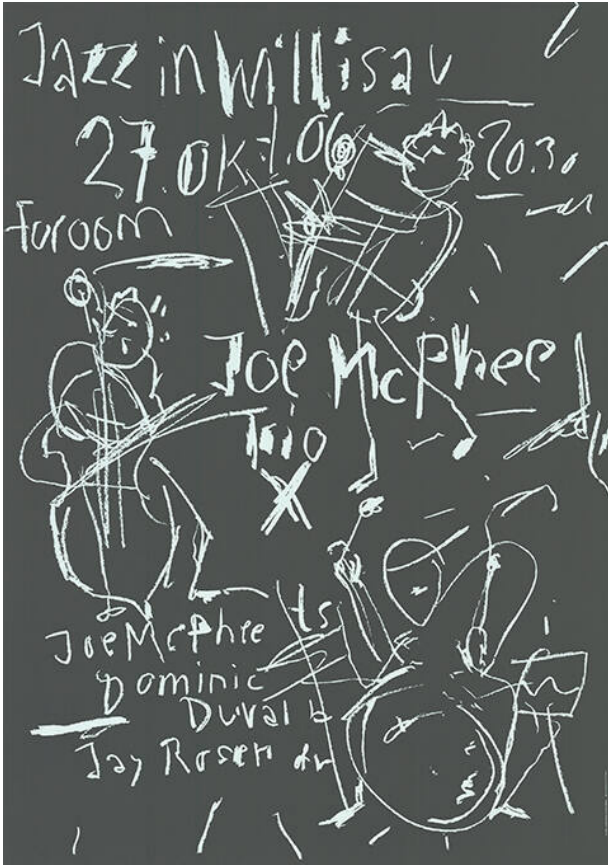 Jazz in Willisau
27. Okt. 06 20.30
Foroom
Joe McPhee
Trio
X
Joe McPhee ts
Dominic
Duval b
Jay Rosen dr